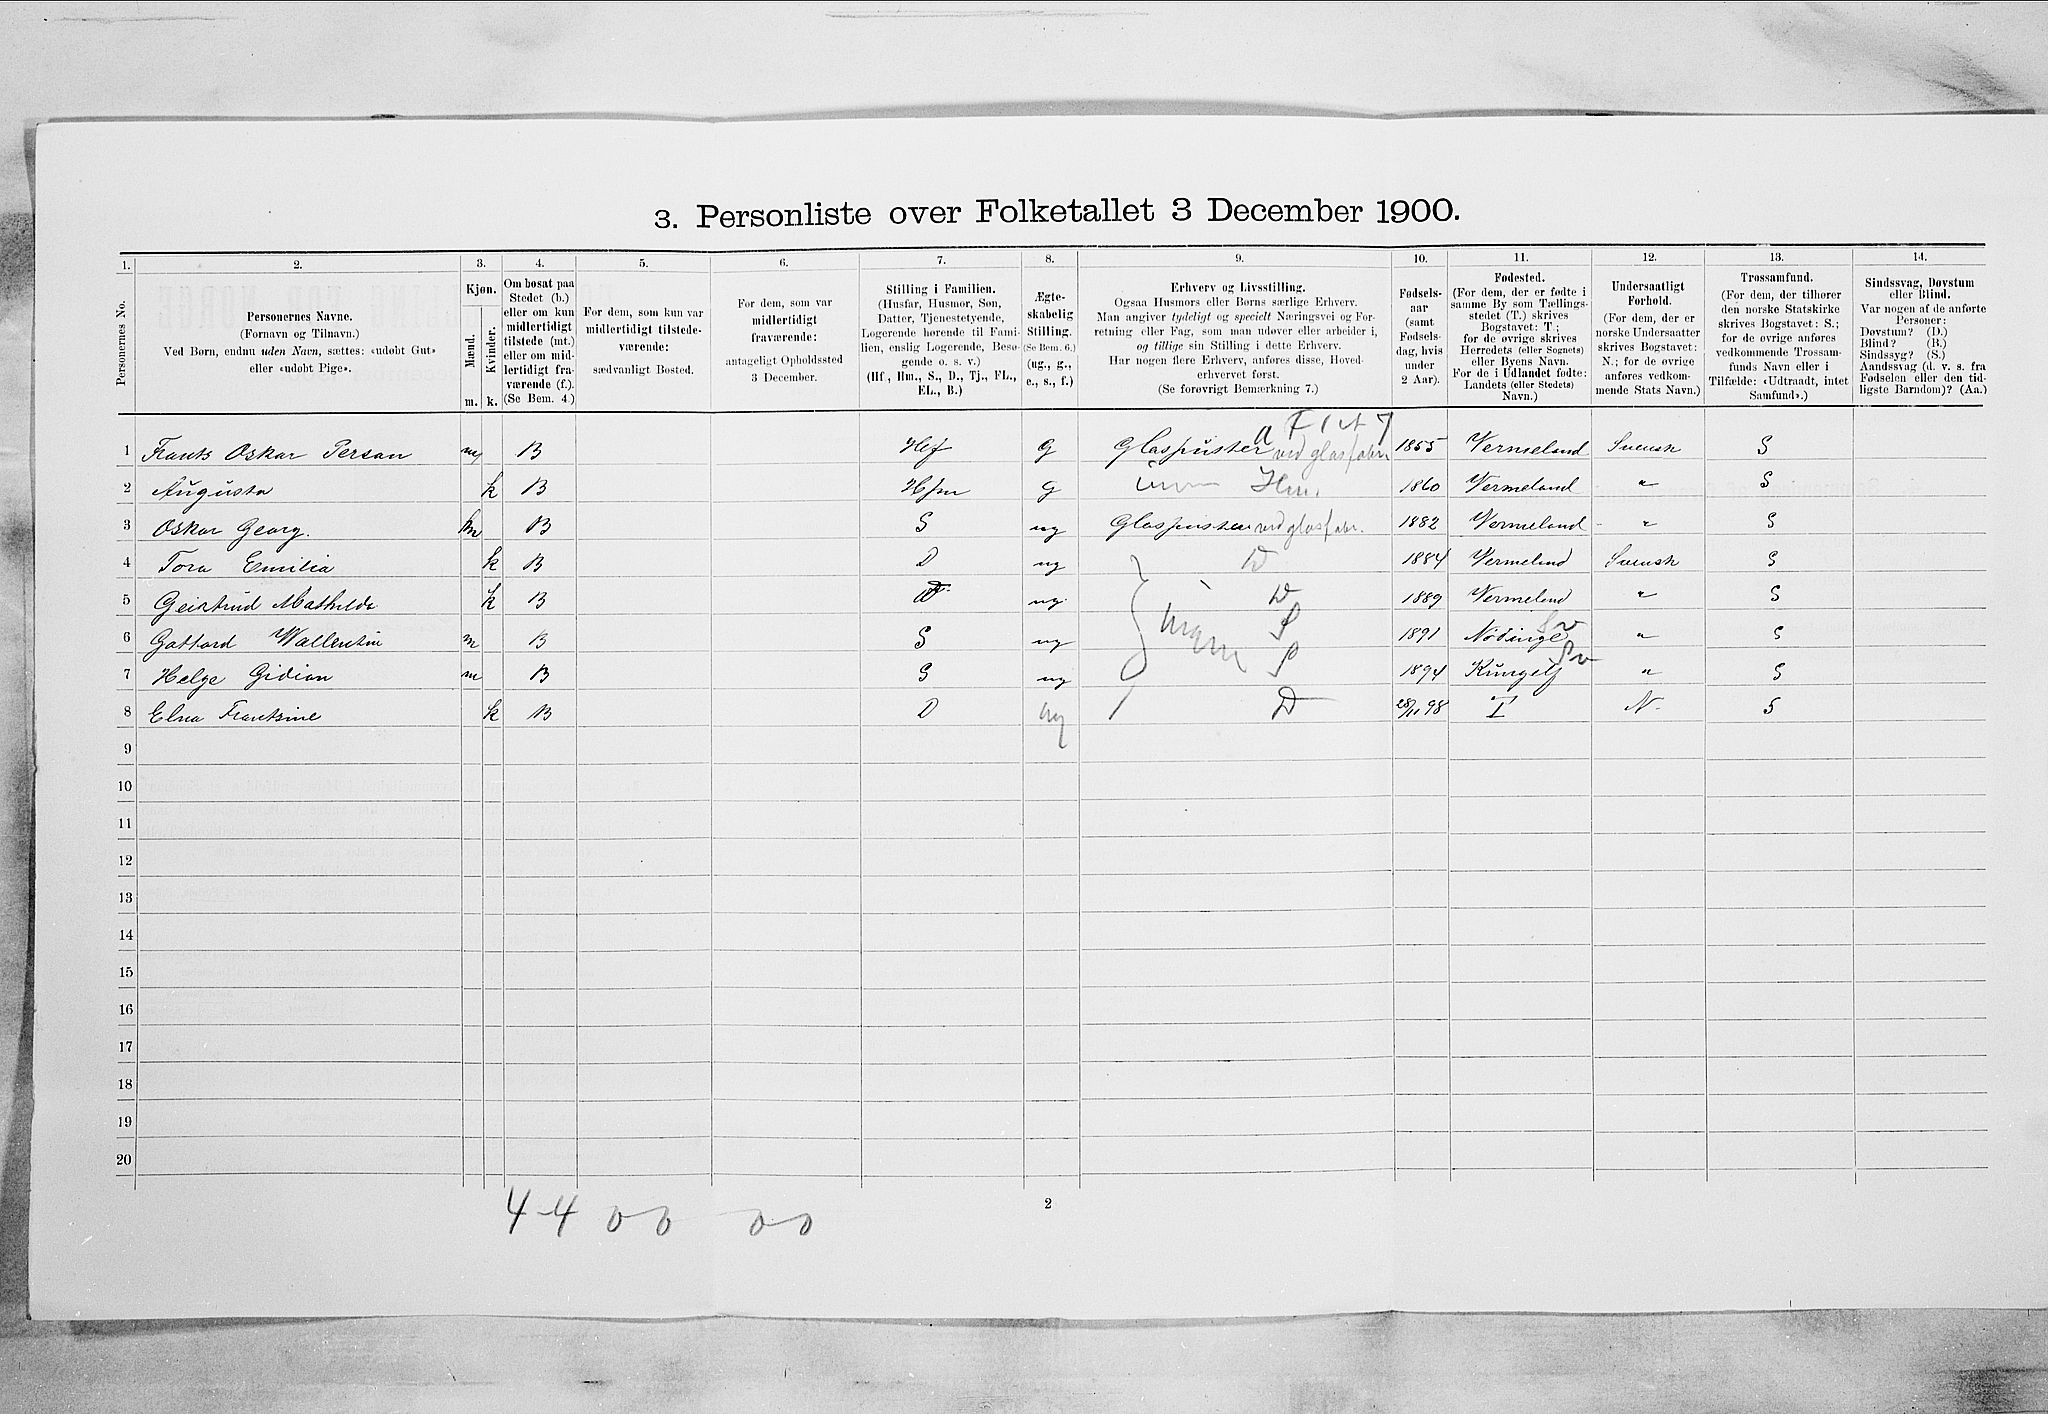 3. Personliste over Folketallet 3 December 1900.
1. 2. 3. 4. 5. 6. 7. 8. 9. 10. 11. 12. 13. 14.
Personernes No.
Personernes Navne.
(Fornavn og Tilnavn.)
Ved Børn, endnu uden Navn, sættes: «udøbt Gut»
eller «udøbt Pige».
Kjøn.
Mænd.
Kvinder.
m. k.
Om bosat paa
Stedet (b.)
eller om kun
midlertidigt
tilstede (mt.)
eller om mid-
lertidigt fra-
værende (f.).
(Se Bem. 4.)
For dem, som kun var
midlertidigt tilstede-
værende:
sædvanligt Bosted.
For dem, som var
midlertidigt
fraværende:
antageligt Opholdssted
3 December.
Stilling i Familien.
(Husfar, Husmor, Søn,
Datter, Tjenestetyende,
Logerende hørende til Fami-
lien, enslig Logerende, Besø-
gende o. s. v.)
(Hf., Hm., S., D., Tj., FL.,
EL., B.)
Ægte-
skabelig
Stilling.
(Se Bem. 6.)
(ug., g.,
e., s., f.)
Erhverv og Livsstilling.
Ogsaa Husmors eller Børns særlige Erhverv.
Man angiver tydeligt og specielt Næringsvei og For-
retning eller Fag, som man udøver eller arbeider i,
og tillige sin Stilling i dette Erhverv.
Har nogen flere Erhverv, anføres disse, Hoved-
erhvervet først.
(Se forøvrigt Bemærkning 7.)
Fødsels-
aar
(samt
Fødsels-
dag, hvis
under
2 Aar).
Fødested.
(For dem, der er fødte i
samme By som Tællings-
stedet (T.) skrives
Bogstavet: T;
for de øvrige skrives
Herredets (eller Sognets)
eller Byens Navn.
For de i Udlandet fødte:
Landets (eller Stedets)
Navn.)
Undersaatligt
Forhold.
(For dem, der er
norske Undersaatter
skrives Bogstavet:
N.; for de øvrige
anføres vedkom-
mende Stats Navn.)
Trossamfund.
(For dem, der tilhører
den norske Statskirke
skrives Bogstavet: S.;
for de øvrige anføres
vedkommende Trossam-
funds Navn eller i
Tilfælde: «Udtraadt, intet
Samfund».)
Sindssvag, Døvstum
eller Blind.
Var nogen af de anførte
Personer:
Døvstum? (D.)
Blind? (B.)
Sindssyg? (S.)
Aandssvag (d. v. s. fra
Fødselen eller den tid-
ligste Barndom)? (Aa.)
1 Frants Oskar Persan m B Hf G Glaspuster ved glasfabr 1855 Vermeland Svensk S
2 Augusta k B Hm G Hm. 1860 Vermeland " S
3 Oskar Georg. m B S ug Glaspuster ved glasfabr. 1882 Vermeland " S
4 Tora Emilia k B D ug D 1884 Vermelend Svensk S
5 Geirtrud Mathilde k B D ug. D 1889 Vermelend " S
6 Gottard Wallentin m B S ug S 1891 Nödinge Sv " S
7 Helge Gidion m B S ug S 1894 Kungelf Sv " S
8 Elna Frantsine k B D ug D 28/11 98 T N. S
9
10
11
12
13
14
15
16
17
18
19
20
4-4 00 00
2